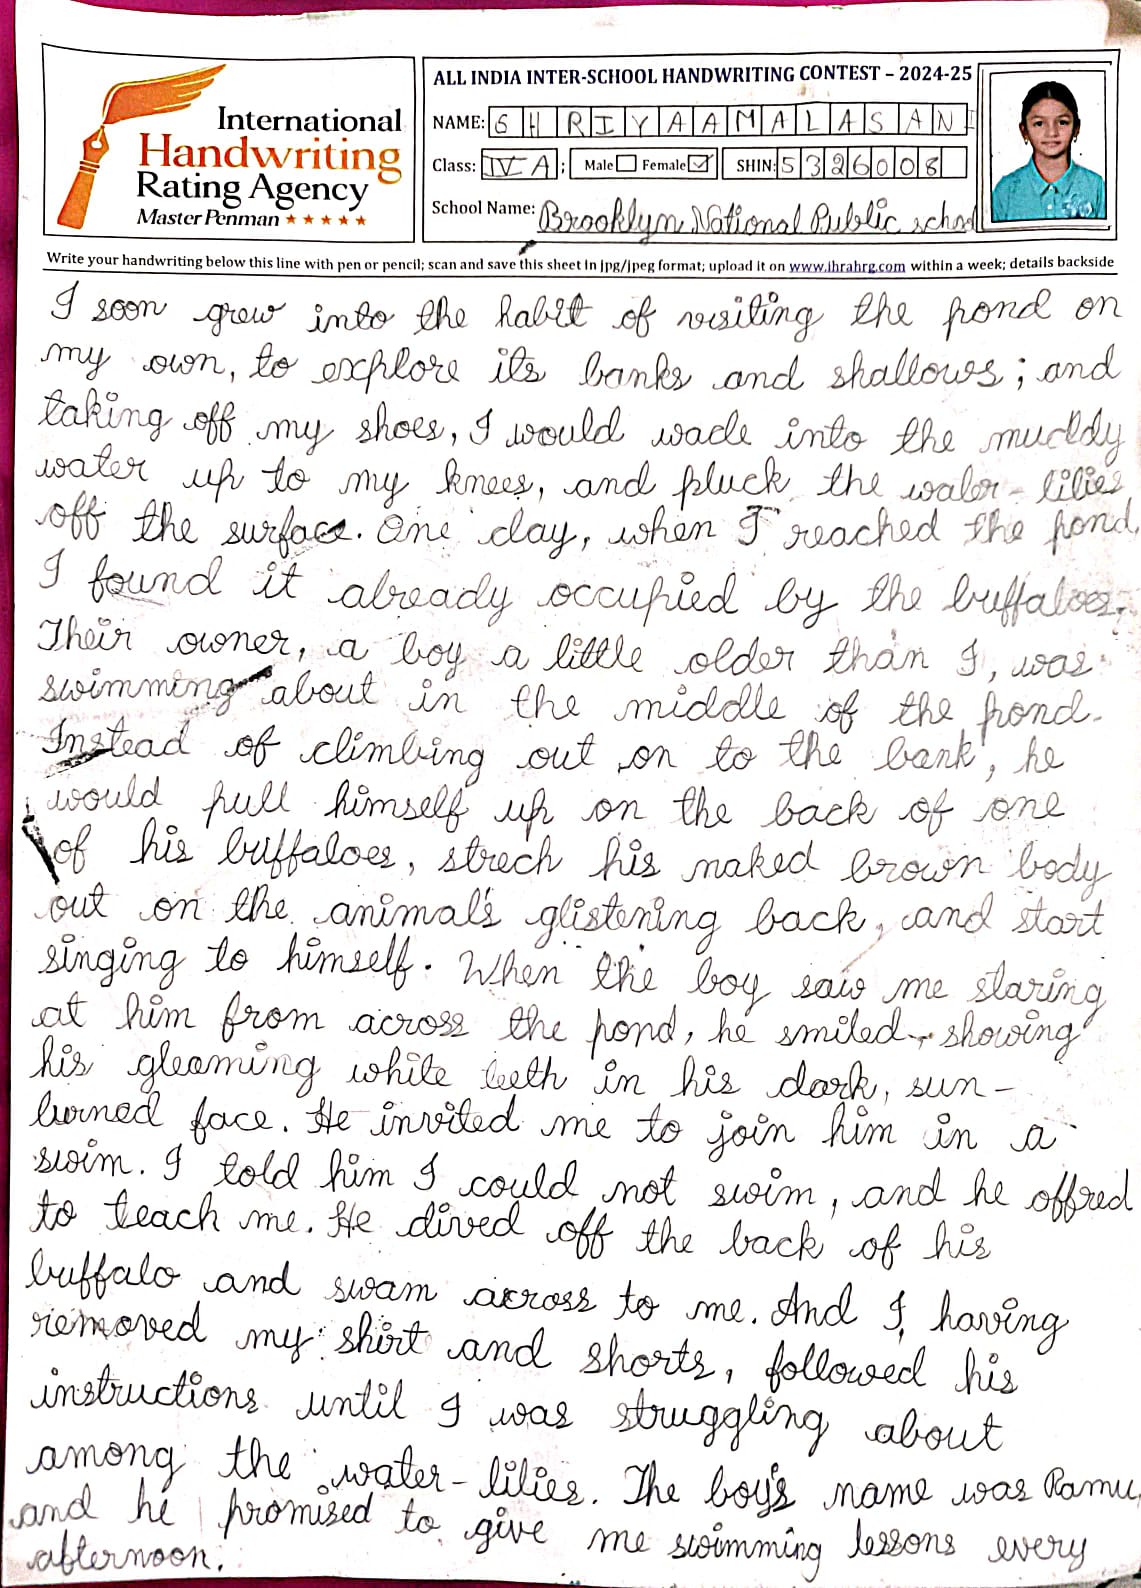 International
Handwriting
Rating Agency
Master Penman ★★★★★
ALL INDIA INTER-SCHOOL HANDWRITING CONTEST – 2024-25
NAME: SHRIYAAMALASAN
Class: IV A; Male ☐ Female ☑ SHIN: 5326008
School Name: Brooklyn National Public school
Write your handwriting below this line with pen or pencil; scan and save this sheet in jpg/jpeg format; upload it on www.ihrahrg.com within a week; details backside
I soon grew into the habit of visiting the pond on
my own, to explore its banks and shallows; and
taking off my shoes, I would wade into the muddy
water up to my knees, and pluck the water-lilies
off the surface. One day, when I reached the pond,
I found it already occupied by the buffaloes.
Their owner, a boy a little older than I, was
swimming about in the middle of the pond.
Instead of climbing out on to the bank, he
would pull himself up on the back of one
of his buffaloes, strech his naked brown body
out on the animal's glistening back, and start
singing to himself. When the boy saw me staring
at him from across the pond, he smiled, showing
his gleaming white teeth in his dark, sun-
burned face. He invited me to join him in a
swim. I told him I could not swim, and he offred
to teach me. He dived off the back of his
buffalo and swam across to me. And I, having
removed my shirt and shorts, followed his
instructions until I was struggling about
among the water-lilies. The boy's name was Ramu,
and he promised to give me swimming lessons every
afternoon.